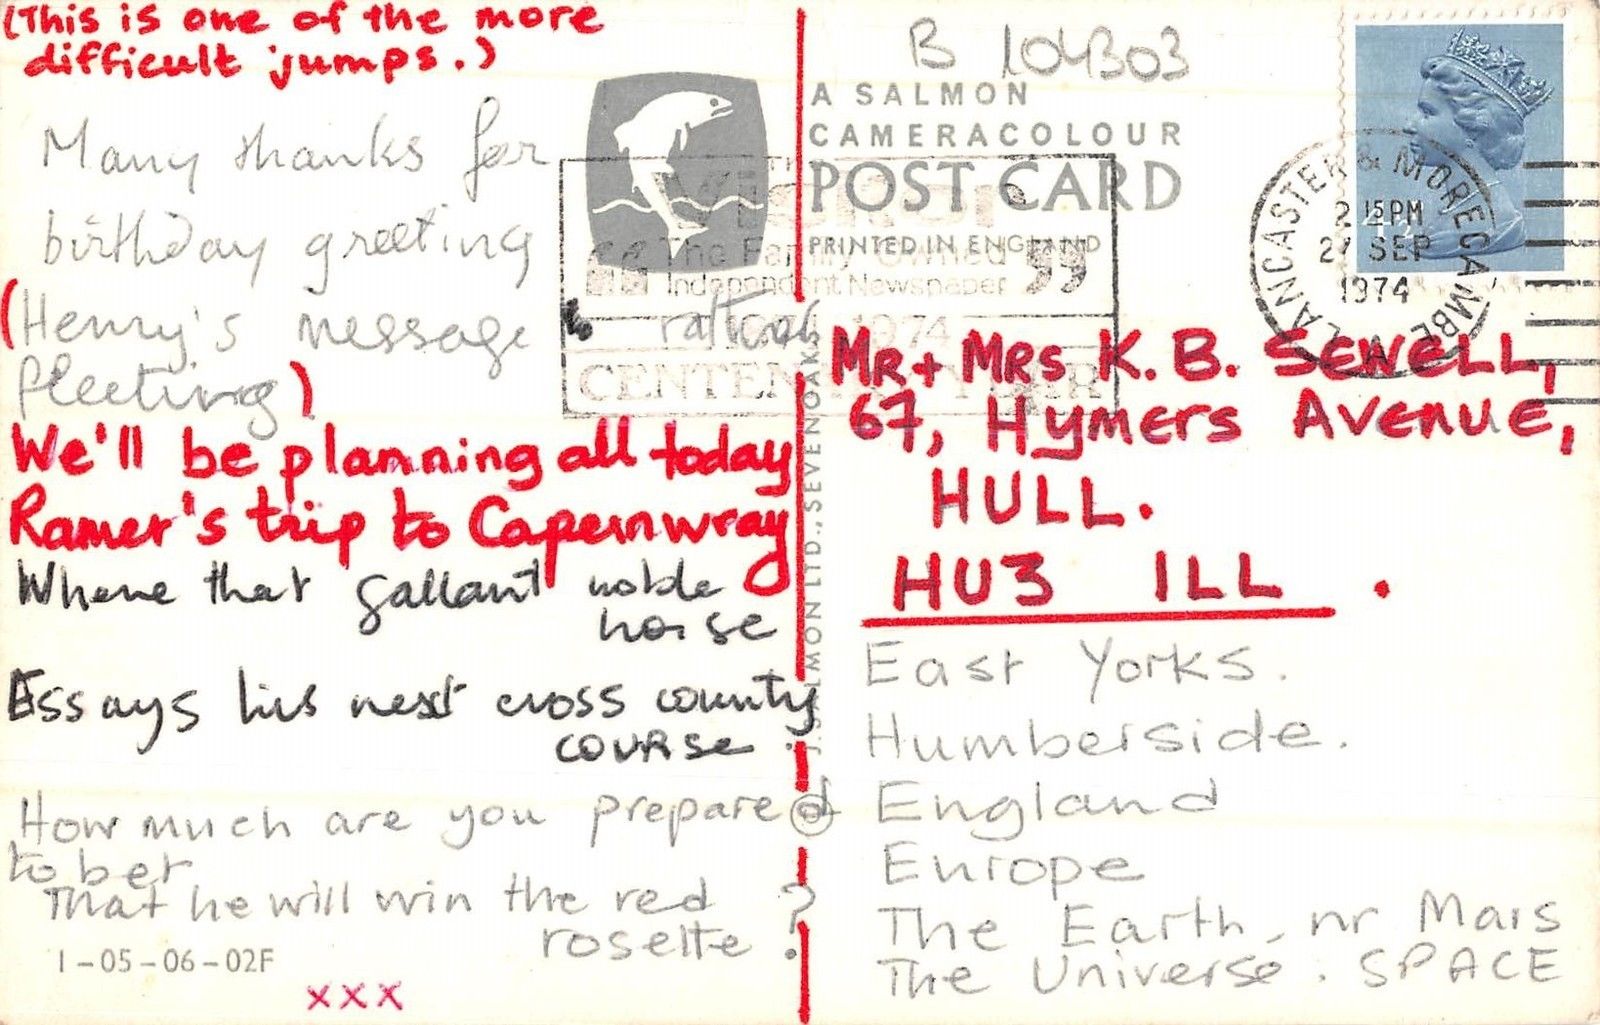 (This is one of the more
difficult jumps.)
Many thanks for
birthday greeting
(Henry's message rather
fleeting)
We'll be planning all today
Ramer's trip to Capernwray
Where that gallant noble
horse
Essays his next cross county
course.
How much are you prepared
to bet
That he will win the red
rosette?
1-05-06-02F
xxx
J. SALMON LTD., SEVENOAKS
B 104303
A SALMON
CAMERACOLOUR
POST CARD
PRINTED IN ENGLAND
The Family Owned
Independent Newspaper
1974
CENTENARY YEAR
LANCASTER & MORECAMBE
2 15 PM
27 SEP
1974
A
MR + MRS K. B. SEWELL,
67, HYMERS AVENUE,
HULL.
HU3 1LL.
East Yorks.
Humberside.
England
Europe
The Earth, nr Mars
The Universe. SPACE